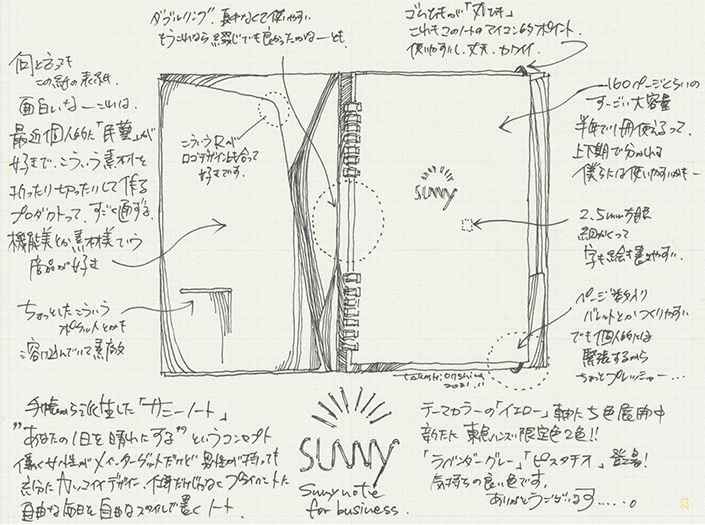 ダブルリング。真中なくて使いやすい
もうこれなら綴じでも良かったかなーとも。
ゴムどめが「丸ひも」
これもこのノートのアイコン的ポイント。
使いやすいし、丈夫、カワイイ
何と言っても
この紙の表紙。
面白いなーこれは。
最近個人的に「民藝」が
好きで、こういう素材を
折ったり切ったりして作る
プロダクトって、すごく通ずる。
機能美とか素材美ていう
商品が好き
ちょっとしたこういう
ポケットとかも
溶け込んでいて素敵
こういうRが
ロゴデザインとも合って
好きです。
sunny
160ページくらいの
すごい大容量
半年で1冊使えるって、
上下期で分かれる
僕らには使いやすいかもー
2.5mm方眼
細かくって
字も絵も書きやすい。
ページ数入り
バレットとかつくりやすい
でも個人的には
緊張するから
ちょっとプレッシャー・・・・
2021.11
手帳から派生した「サニーノート」
"あなたの1日を晴れにする"というコンセプト
働く女性がメインターゲットだけど男性が持っても
充分にカッコイイデザイン。仕事だけじゃなくプライベートに
自由な毎日を自由なスタイルで書くノート。
sunny
Sunny note
for business.
テーマカラーの「イエロー」軸に5色展開中
新たに東急ハンズ限定色2色!!
「ラベンダーグレー」「ピスタチオ」登場!
気持ちの良い色です。
ありがとうございます・・・・。
23